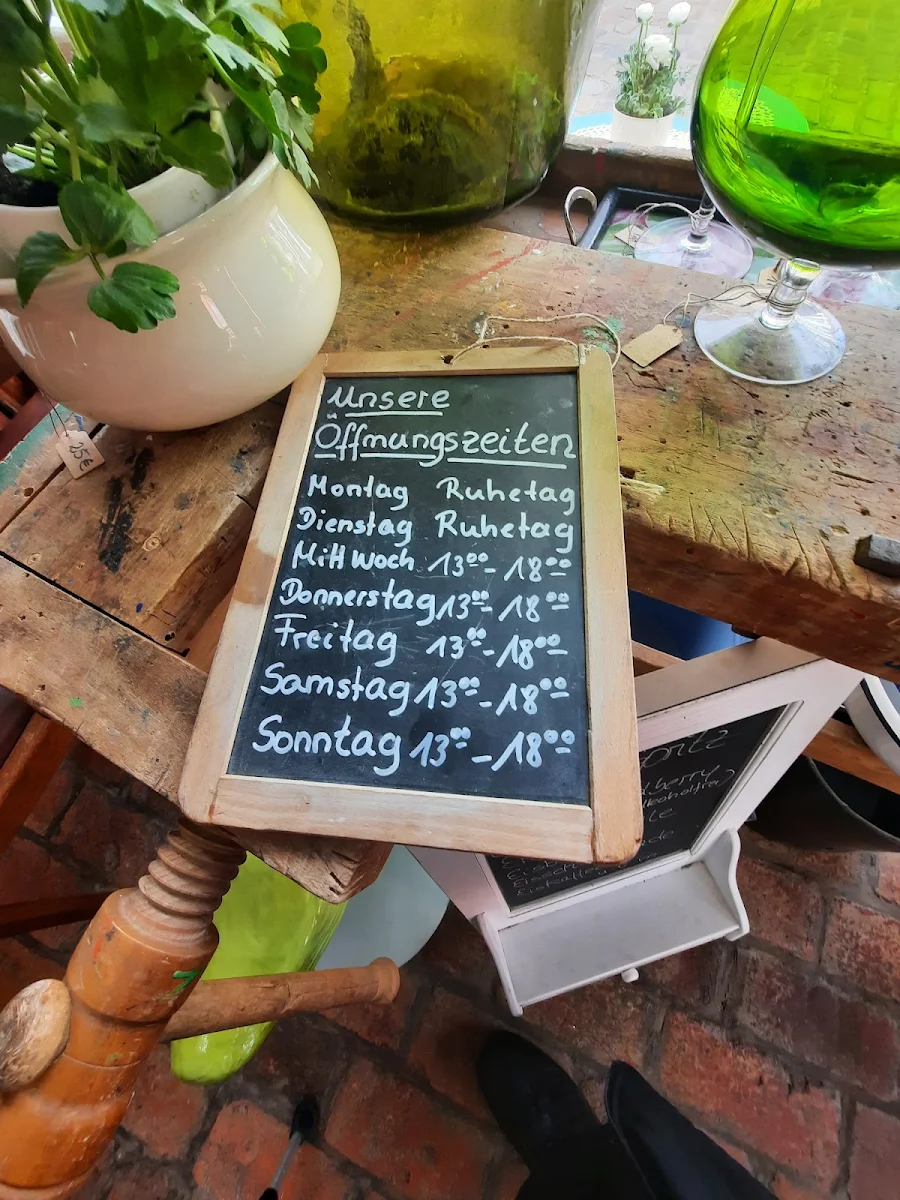 Unsere
Öffnungszeiten
Montag Ruhetag
Dienstag Ruhetag
Mittwoch 13⁰⁰ - 18⁰⁰
Donnerstag 13⁰⁰ - 18⁰⁰
Freitag 13⁰⁰ - 18⁰⁰
Samstag 13⁰⁰ - 18⁰⁰
Sonntag 13⁰⁰ - 18⁰⁰